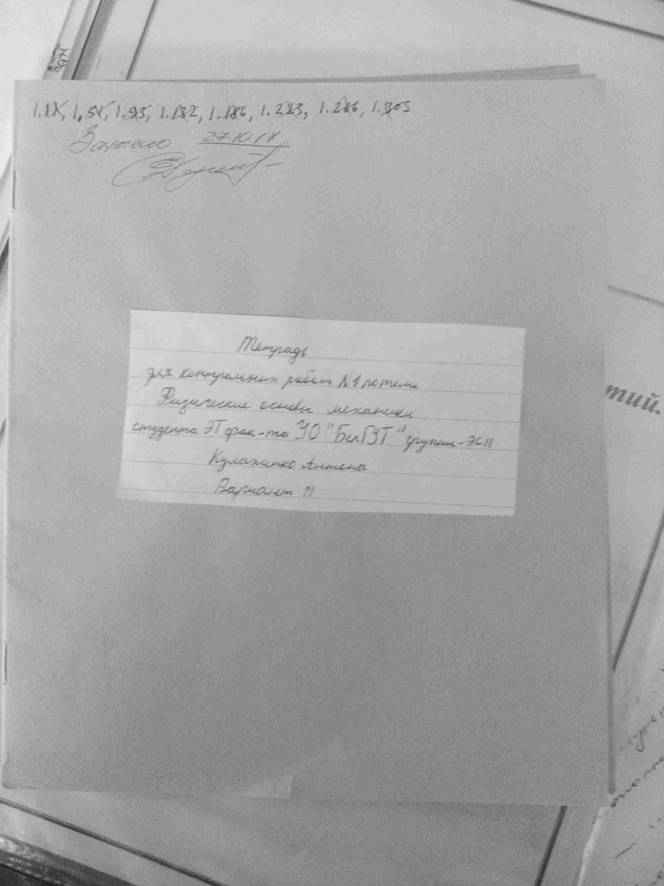 1.1X, 1.5X, 1.95, 1.132, 1.186, 1.223, 1.266, 1.305
Зачтено 27.10.17
Тетрадь
для контрольных работ №1 по теме
Физические основы механики
студента ЭТ фак-та УО "БелГУТ" группы-ЭС11
Антона
Вариант 11
тий.